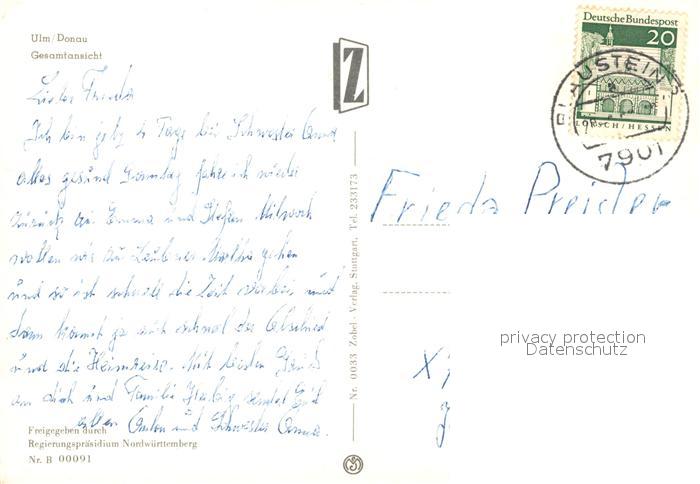 Ulm/Donau
Gesamtansicht
Liebe Frieda
Ich bin jetzt 4 Tage bei Schwester Anna
alles gesund Sonntag fahre ich wieder
zurück zu Emma und Stefan Mitwoch
wollen wir zu Martha gehen
und so ist schnell die Zeit vorbei, und
dann kommt ja auch schnell der Abschied
und die Heimreise. Mit besten Grüß
an dich und Familie sendet Euch
allen und Schwester Anna.
Freigegeben durch
Regierungspräsidium Nordwürttemberg
Nr. B 00091
Z
Nr. 0033 Zobel-Verlag, Stuttgart, Tel. 233173
Deutsche Bundespost
20
LORSCH/HESSEN
BLAUSTEIN
7901
Frieda Preider
privacy protection
Datenschutz